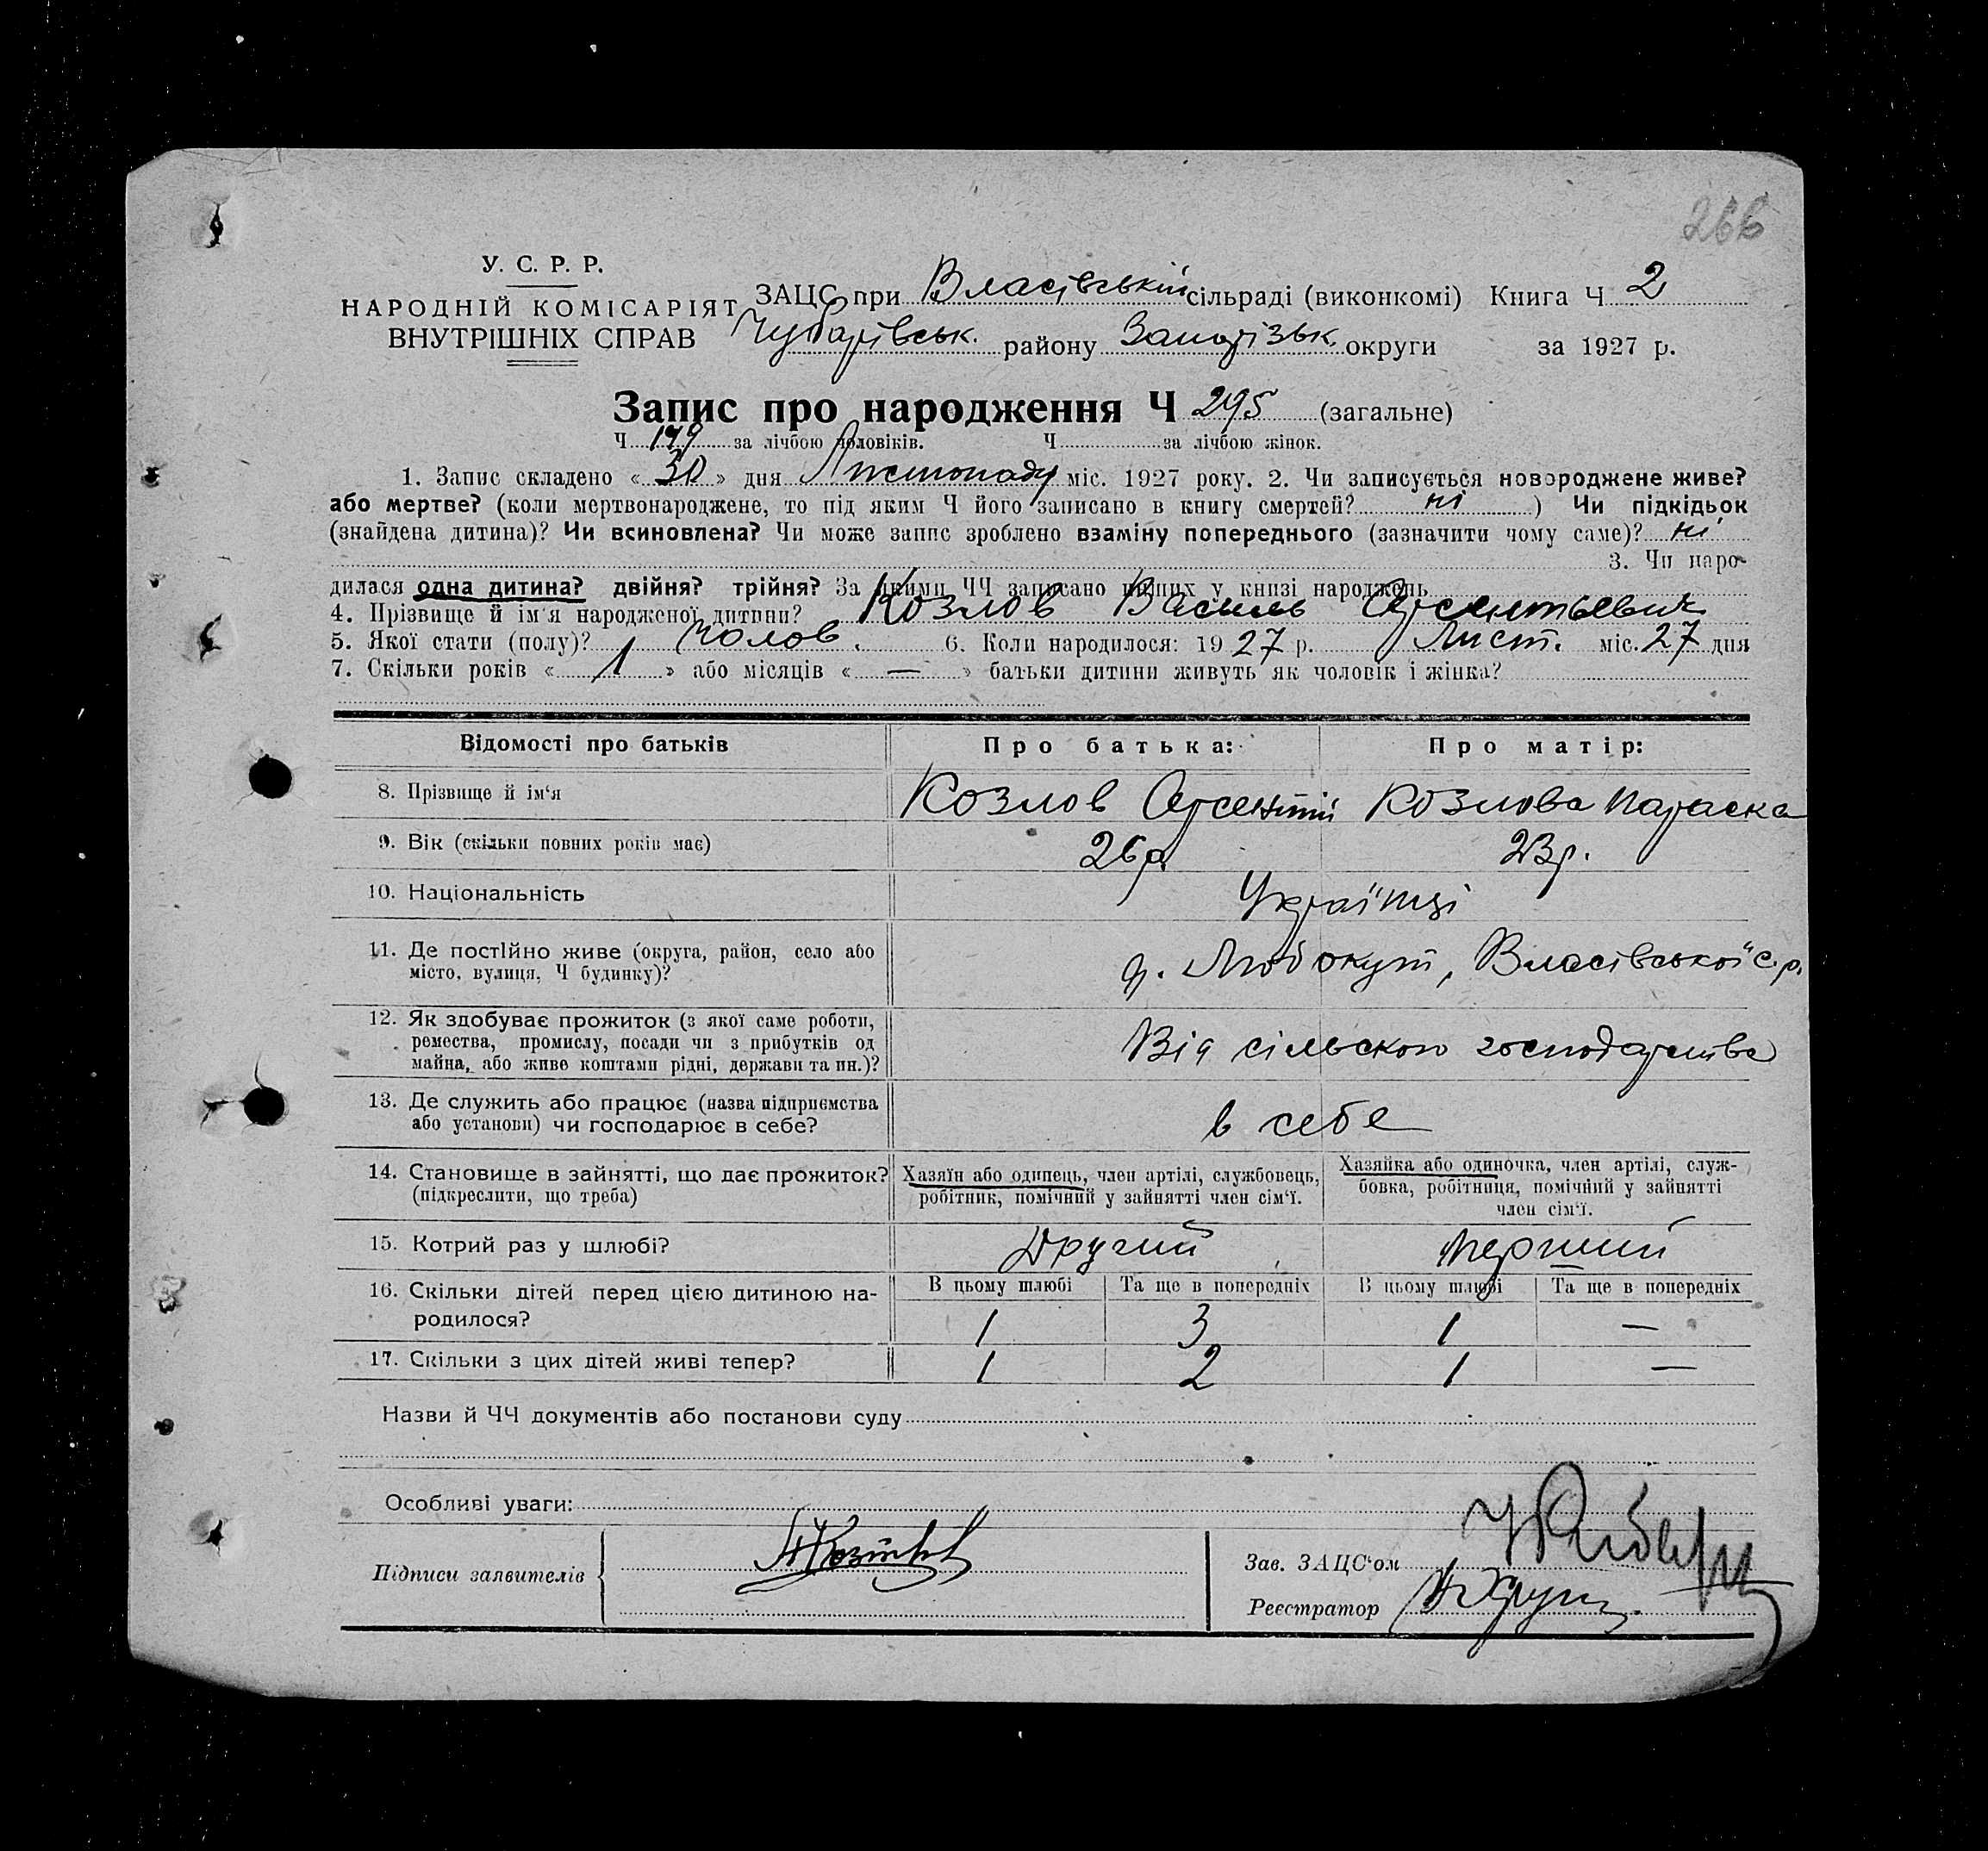 266
У. С. Р. Р.
НАРОДНІЙ КОМІСАРІЯТ
ВНУТРІШНІХ СПРАВ
ЗАЦС при Власівській сільраді (виконкомі) Книга Ч 2
Чубарівськ. району Запорізьк. округи за 1927 р.
Запис про народження Ч 295 (загальне)
Ч 149 за лічбою чоловіків. Ч за лічбою жінок.
1. Запис складено « 30 » дня Листопаду міс. 1927 року. 2. Чи записується новороджене живе?
або мертве? (коли мертвонароджене, то під яким Ч його записано в книгу смертей? ні ) Чи підкідьок
(знайдена дитина)? Чи всиновлена? Чи може запис зроблено взаміну попереднього (зазначити чому саме)? ні
3. Чи наро-
дилася одна дитина? двійня? трійня? За якими ЧЧ записано інших у книзі народжень
4. Прізвище й ім'я народженої дитини? Козлов Василь Арсентьевич
5. Якої стати (полу)? чолов. 6. Коли народилося: 1927 р. Лист. міс. 27 дня
7. Скільки років « 1 » або місяців « — » батьки дитини живуть як чоловік і жінка?
Відомості про батьків Про батька: Про матір:
8. Прізвище й ім'я Козлов Арсентій Козлова Параска
9. Вік (скільки повних років має) 26 р. 23 р.
10. Національність Українці
11. Де постійно живе (округа, район, село або
місто, вулиця, Ч будинку)? д. Любокут, Власівської с.р.
12. Як здобуває прожиток (з якої саме роботи,
ремества, промислу, посади чи з прибутків од
майна, або живе коштами рідні, держави та ин.)? Від сільского господарства
13. Де служить або працює (назва підприємства
або установи) чи господарює в себе? в себе
14. Становище в зайнятті, що дає прожиток?
(підкреслити, що треба)
Хазяїн або одинець, член артілі, службовець,
робітник, помічний у зайнятті член сім'ї.
Хазяйка або одиночка, член артілі, служ-
бовка, робітниця, помічний у зайнятті
член сім'ї.
15. Котрий раз у шлюбі? Другий Перший
16. Скільки дітей перед цією дитиною на-
родилося?
В цьому шлюбі Та ще в попередніх В цьому шлюбі Та ще в попередніх
1 3 1 —
17. Скільки з цих дітей живі тепер? 1 2 1 —
Назви й ЧЧ документів або постанови суду
Особливі уваги:
Підписи заявителів
Зав. ЗАЦС'ом
Реєстратор